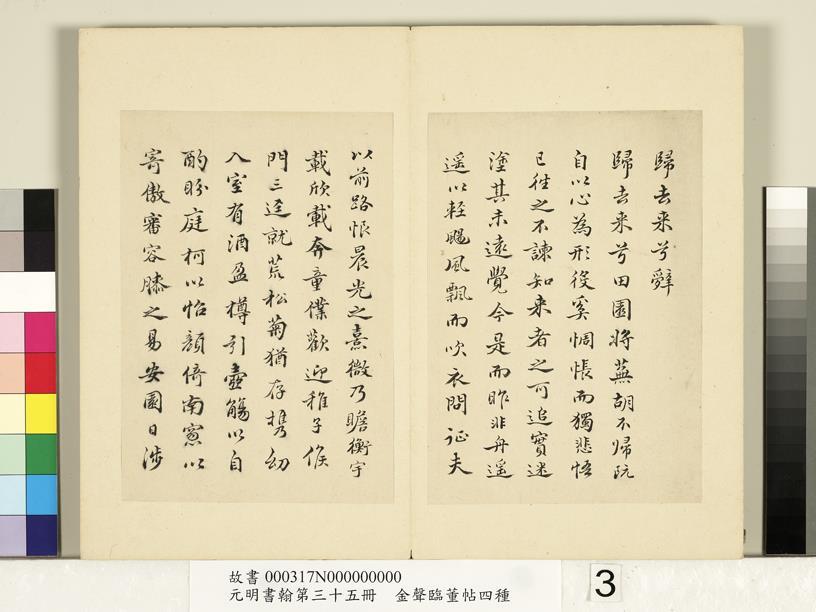 歸去来兮辭
歸去来兮田園將蕪胡不歸既
自以心為形役奚惆悵而獨悲悟
已往之不諫知来者之可追實迷
塗其未遠覺今是而昨非舟遥
遥以輕颺風飄而吹衣問征夫
以前路恨晨光之熹微乃瞻衡宇
載欣載奔童僕歡迎稚子候
門三逕就荒松菊猶存携幼
入室有酒盈樽引壺觴以自
酌眄庭柯以怡顔倚南窻以
寄傲審容膝之易安園日涉
故書 000317N000000000
元明書翰第三十五冊 金聲臨董帖四種
3